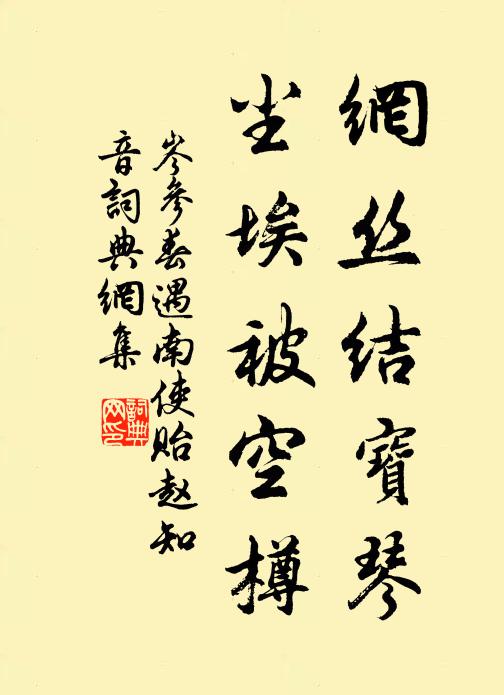 網丝结寶琴
尘埃被空樽
岑參春遇南使貽赵知
音詞典網集
詞典
网印